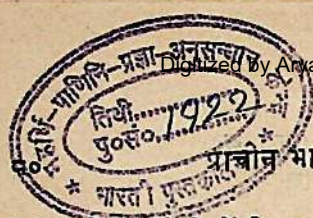 Digitized by Arya
महर्षि-पाणिनि-प्रज्ञा-अनुसन्धान
तिथी..........
पु०सं० 1922
भारती पुस्तकालय
प्राचीन